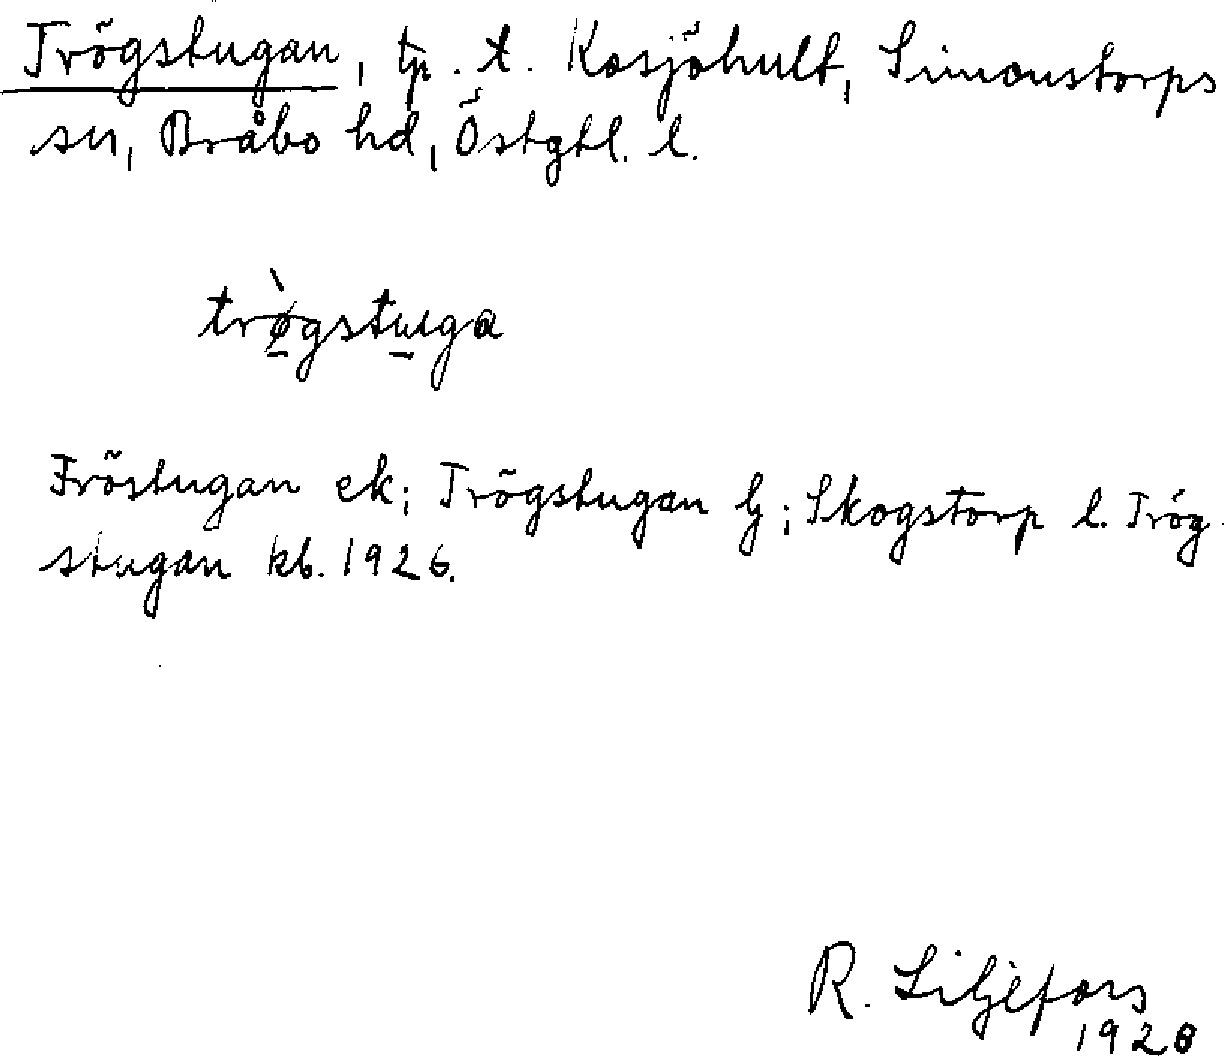 Trögstugan, tp. t. Kosjöhult, Simonstorps
sn, Bråbo hd, Östgtl. l.
trø̀gstuga
Fröstugan ek; Trögstugan lj; Skogstorp l. Trög-
stugan kb. 1926.
R. Liljefors
1928